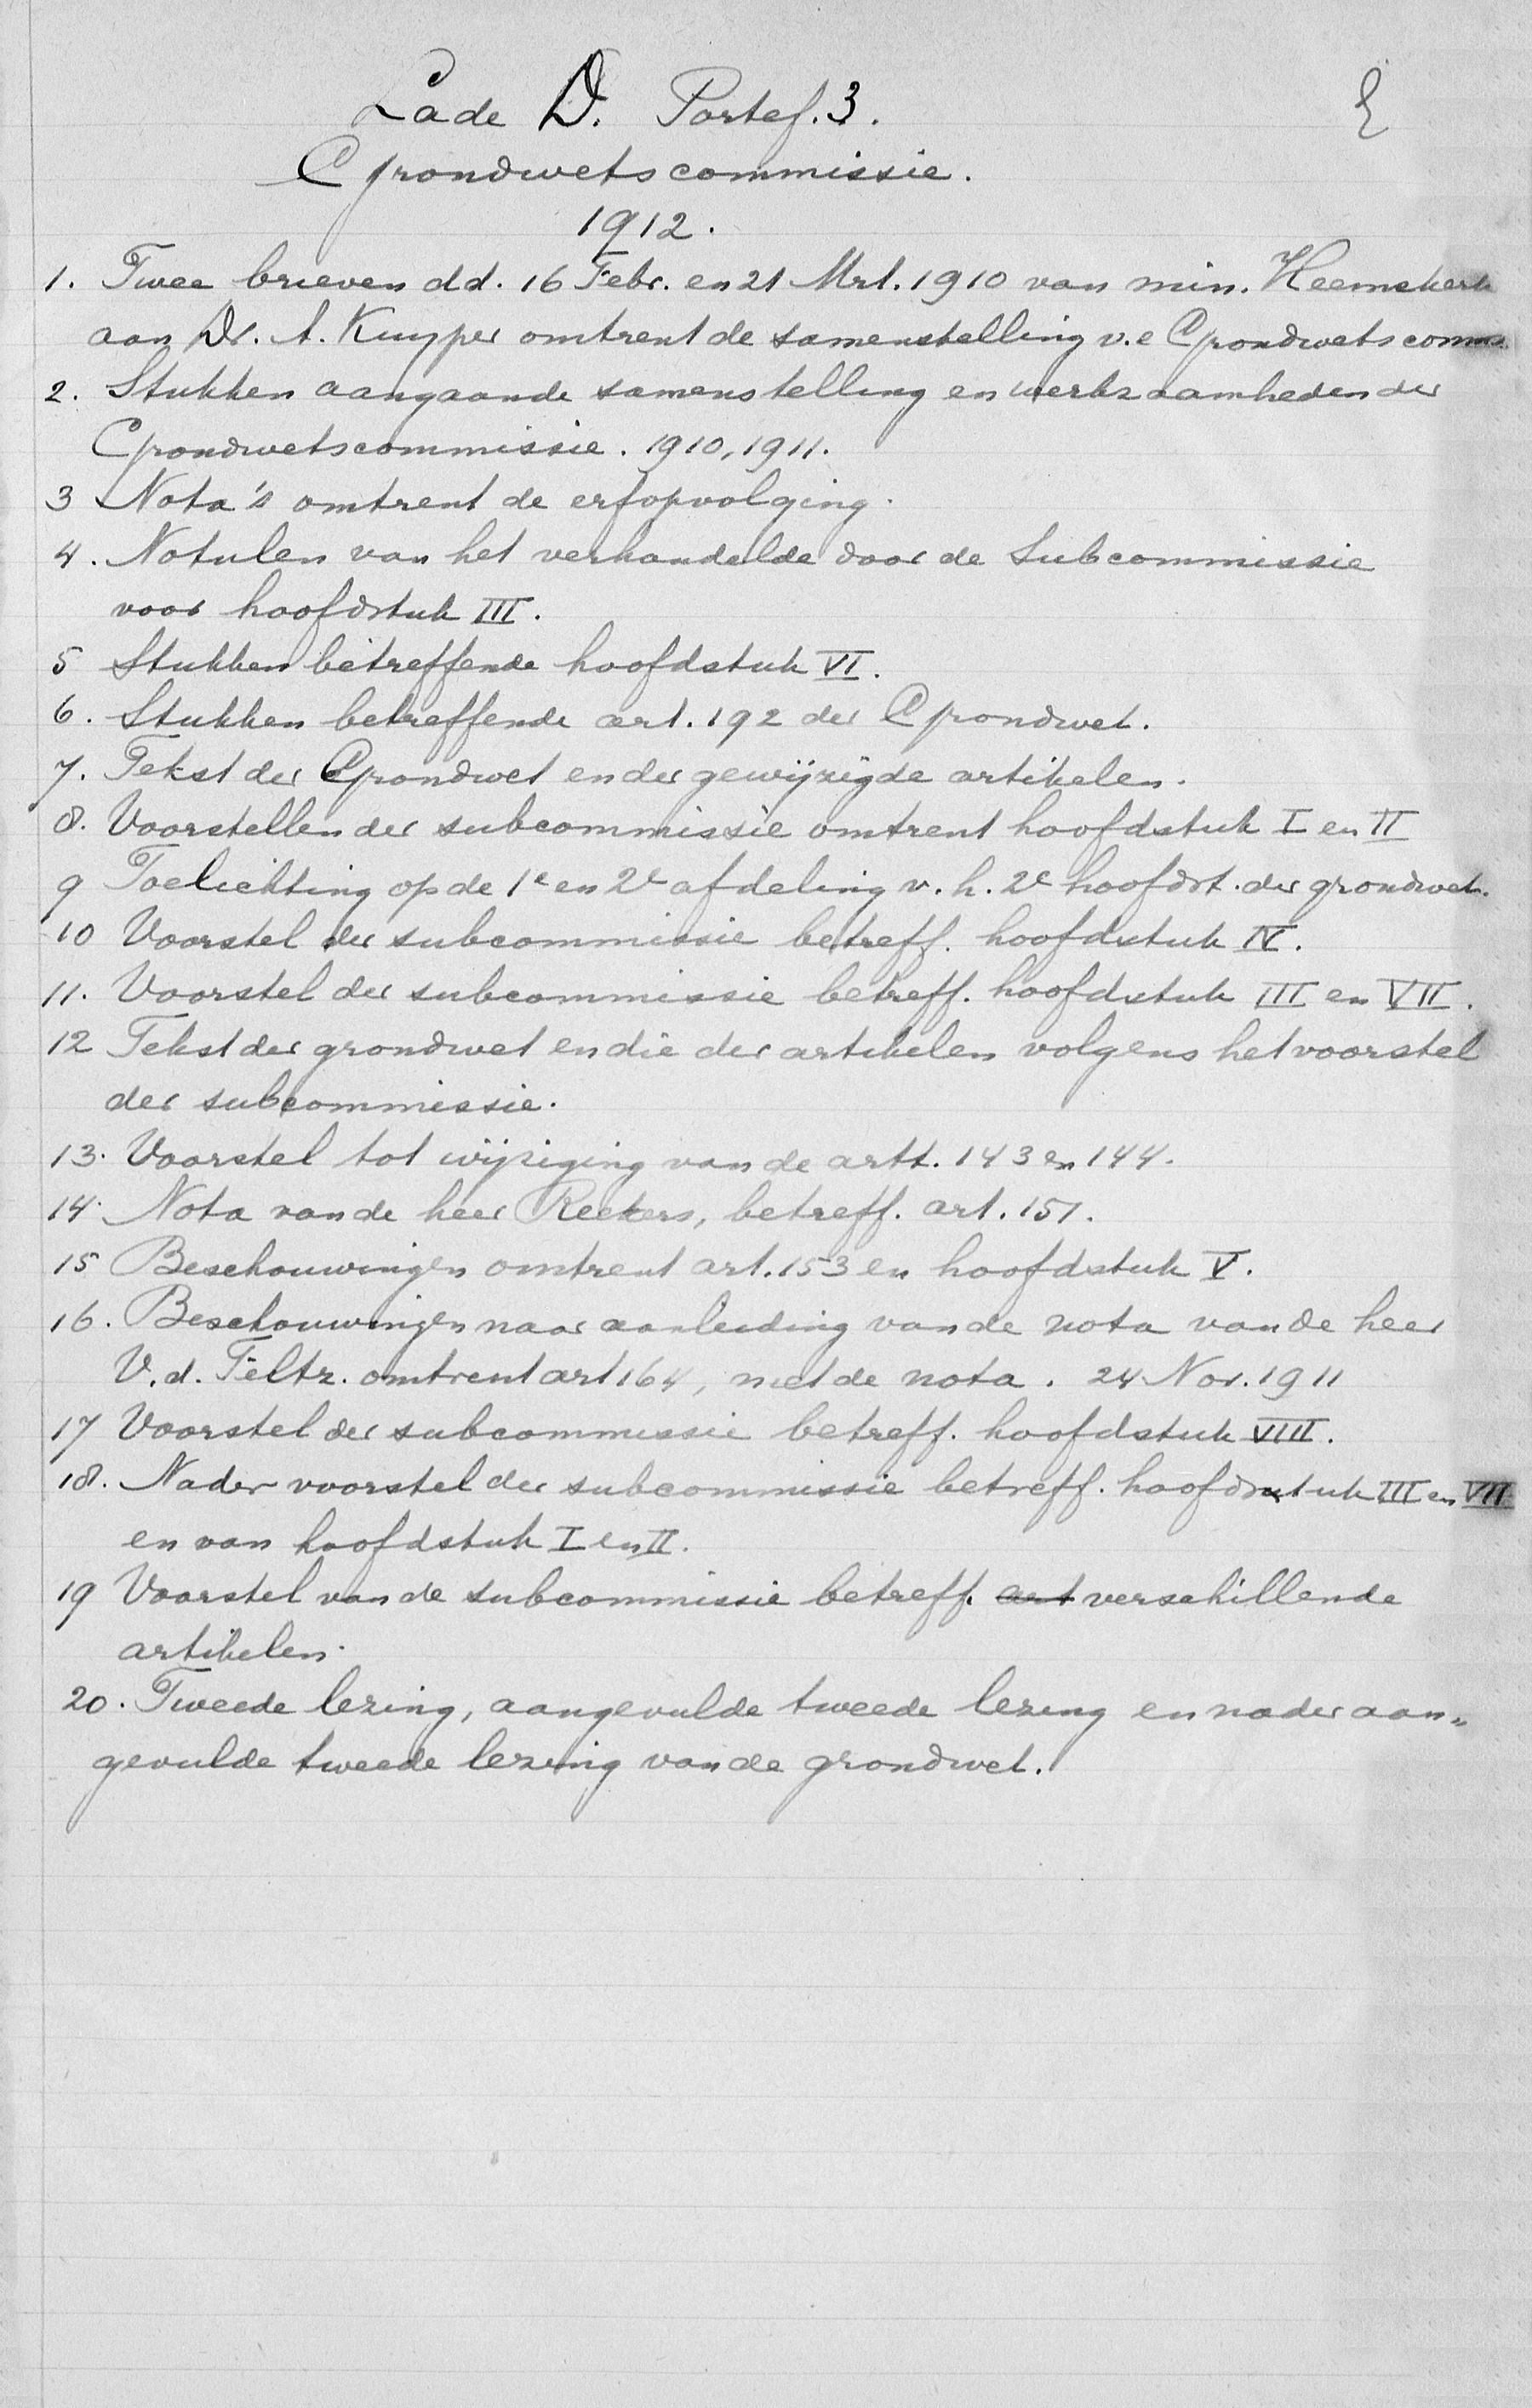 Lade D. Portef. 3.
Grondwetscommissie.
1912.
1. Twee brieven dd. 16 Febr. en 21 Mrt. 1910 van min. Heemskerk
aan Dr. A. Kuyper omtrent de samenstelling v.e Grondwetscomms.
2. Stukken aangaande samenstelling en werkzaamheden der
Grondwetscommissie. 1910, 1911.
3 Nota's omtrent de erfopvolging.
4. Notulen van het verhandelde door de Subcommissie
voor hoofdstuk III.
5 Stukken betreffende hoofdstuk VI.
6. Stukken betreffende art. 192 der Grondwet.
7. Tekst der Grondwet en der gewijzigde artikelen.
8. Voorstellen der subcommissie omtrent hoofdstuk I en II
9 Toelichting op de 1e en 2e afdeling v. h. 2e hoofdst. der grondwet.
10 Voorstel der subcommissie betreff. hoofdstuk IV.
11. Voorstel der subcommissie betreff. hoofdstuk III en VII.
12 Tekst der grondwet en die der artikelen volgens het voorstel
der subcommissie.
13. Voorstel tot wijziging van de artt. 143 en 144.
14. Nota van de heer Reekers, betreff. art. 151.
15 Beschouwingen omtrent art. 153 en hoofdstuk V.
16. Beschouwingen naar aanleiding van de nota van de heer
V. d. Feltz. omtrent art 164, met de nota. 24 Nov. 1911
17 Voorstel der subcommissie betreff. hoofdstuk VIII.
18. Nader voorstel der subcommissie betreff. hoofdstuk III en VII
en van hoofdstuk I en II.
19 Voorstel van de subcommissie betreff. art verschillende
artikelen.
20. Tweede lezing, aangevulde tweede lezing en nader aan„
gevulde tweede lezing van de grondwet.